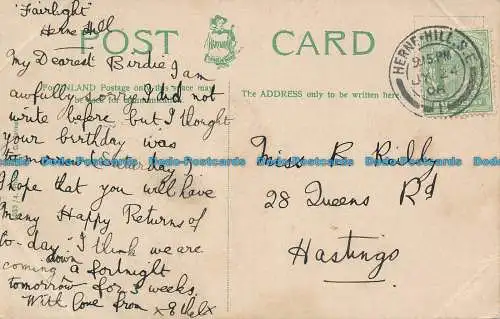 "Fairlight"
Herne Hill
POST CARD
My Dearest Birdie I am
awfully sorry I did not
write before but I thought
your birthday was
tomorrow
I hope that you will have
Many Happy Returns of
to-day. I think we are
coming down a fortnight
tomorrow for 3 weeks.
With love from x Ethel x
For INLAND Postage only this space may
be used for communication.
The ADDRESS only to be written here.
HERNE-HILL S.E.
9.15 PM
Miss R Rilly
28 Queens Rd
Hastings
Dodo-Postcards Dodo-Postcards Dodo-Postcards Dodo-Postcards Dodo-Postcards